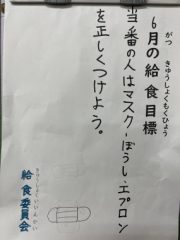 がつ きゅうしょくもくひょう
6月の給食目標
当番の人はマスク・ぼうし・エプロン
を正しくつけよう。
きゅうしょくいいんかい
給食委員会